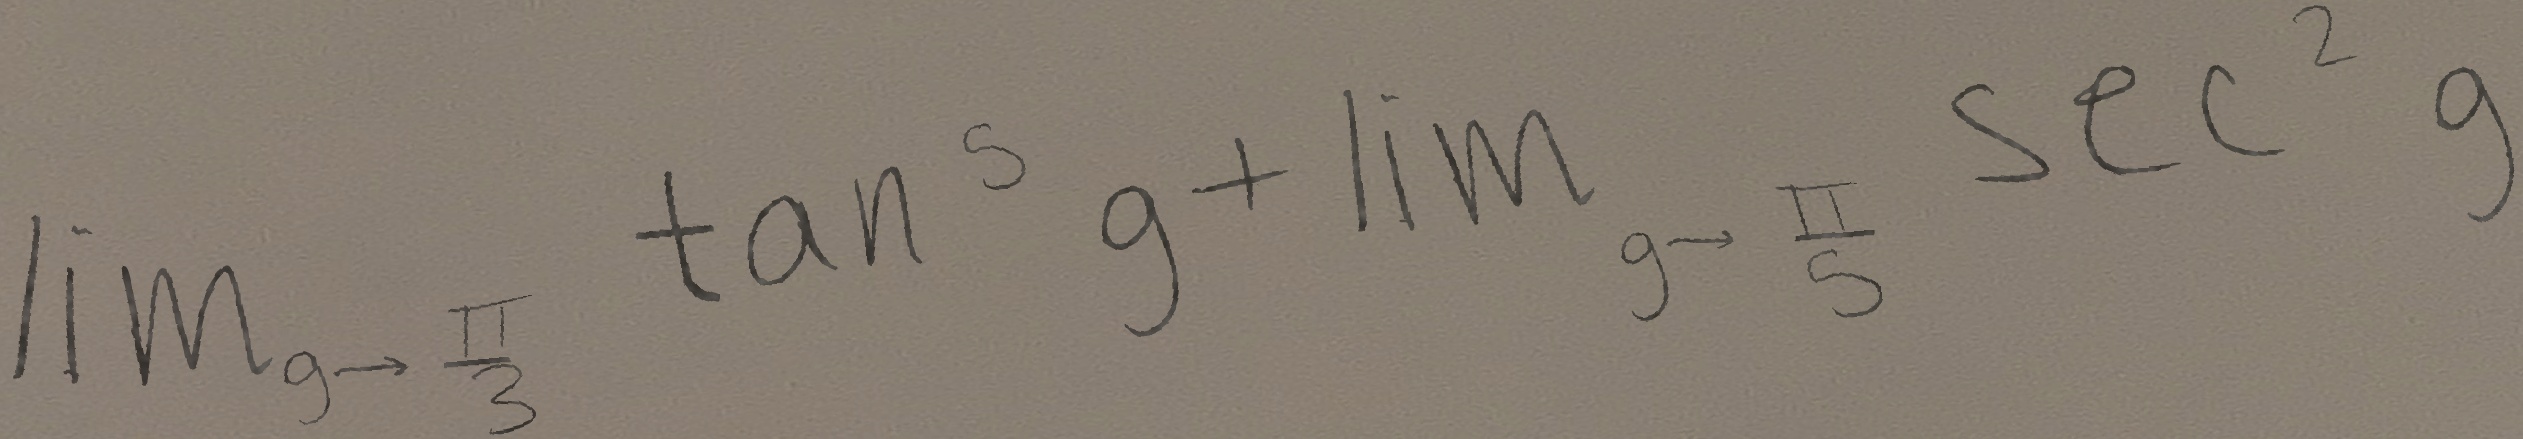 lim_{g→\frac{π}{3}} tan^5 g + lim_{g→\frac{π}{5}} sec^2 g